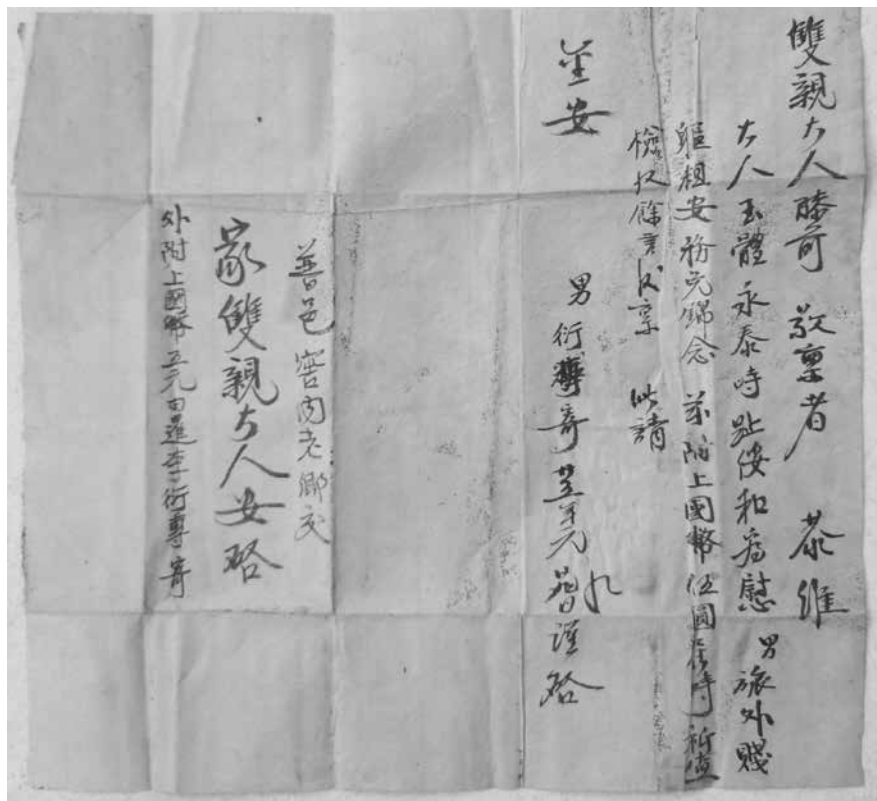 雙親大人膝前 敬稟者 恭維
大人玉體永泰時祉倭和為慰 男旅外賤
軀粗安務免錦念 茲附上國幣伍圓 至時祈查
檢收餘言後稟 此請
金安
男 衍 寄 元月 九日 謹啓
普邑 窖內老鄉交
家雙親大人安啓
外附上國幣五元 由暹李衍專寄